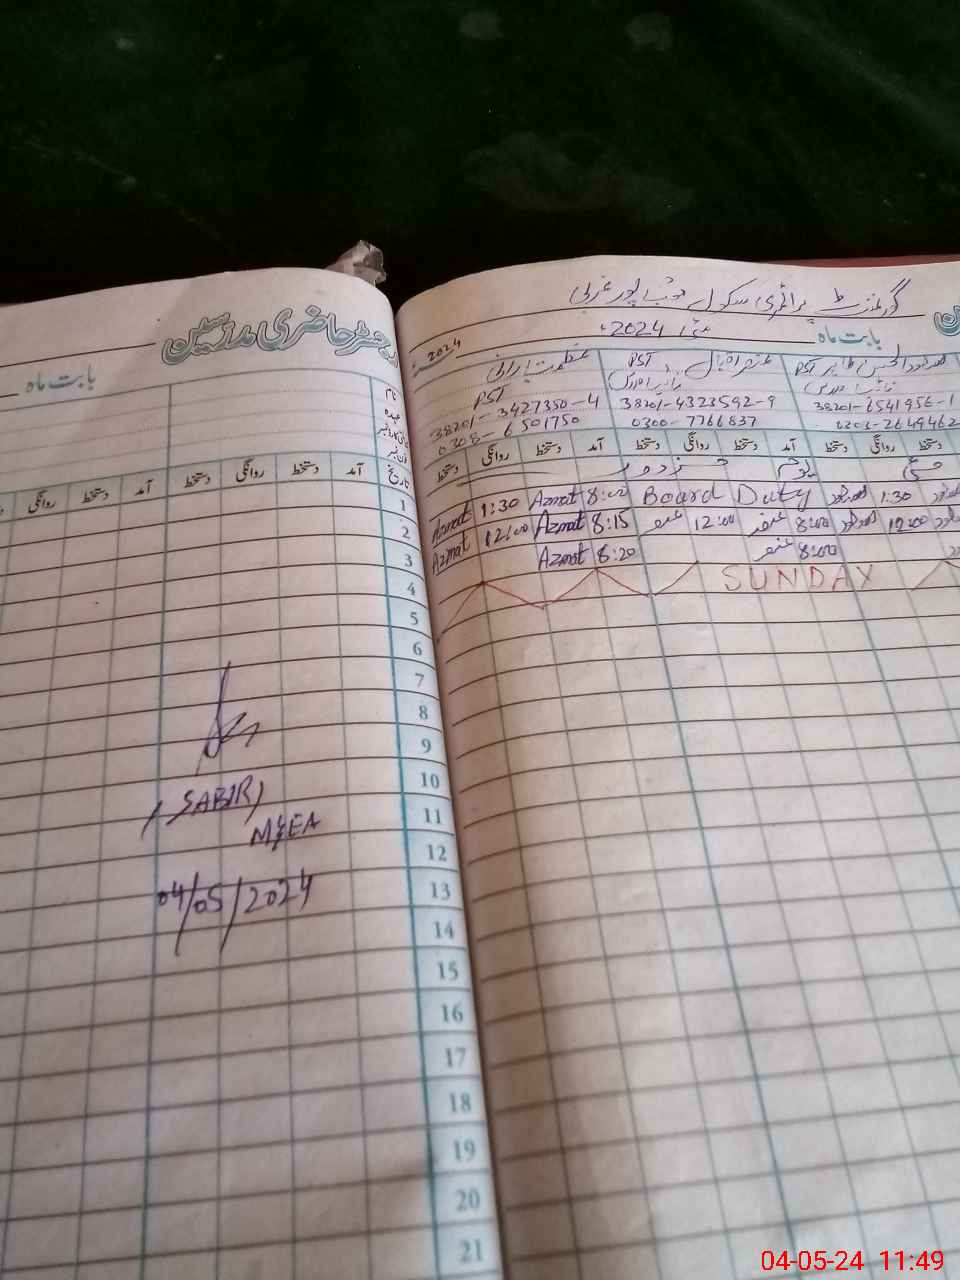 رجسٹر حاضری مدرسین
بابت ماہ
نام
عہدہ
شناختی کارڈ نمبر
فون نمبر
تاریخ
آمد دستخط روانگی دستخط آمد دستخط روانگی
1
2
3
4
5
6
7
8
9
10
11
12
13
14
15
16
17
18
19
20
21
(SABIR)
MEA
04/05/2024
گورنمنٹ پرائمری سکول غربی
بابت ماہ مئی 2024ء
2024
PST
38201-6541956-1
0303-2649462
اقبال PST
38201-4323592-9
0300-7766837
عظمت
PST
38201-3427350-4
0308-6501750
روانگی دستخط آمد دستخط روانگی دستخط آمد دستخط روانگی دستخط
یوم مزدور
1:30 Board Duty 8:00 Azmat 1:30 Azmat
12:00 8:00 12:00 8:15 Azmat 12:00 Azmat
8:00 8:20 Azmat
SUNDAY
04-05-24 11:49